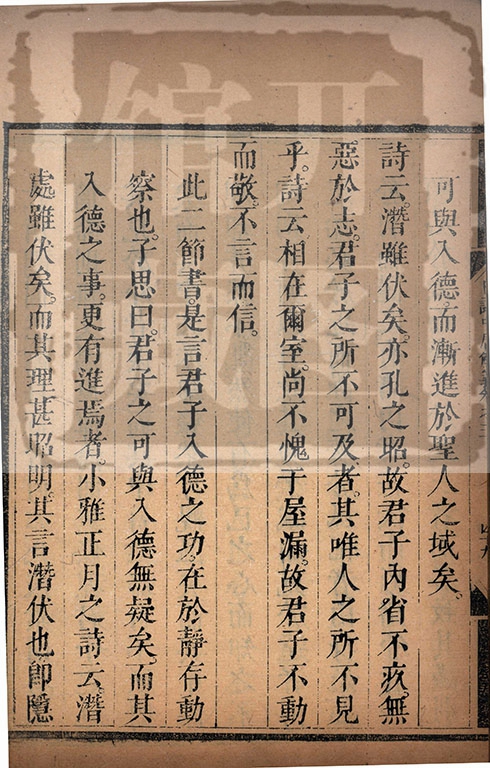 可與入德而漸進於聖人之域矣。
詩云。潛雖伏矣。亦孔之昭。故君子內省不疚。無
惡於志。君子之所不可及者。其唯人之所不見
乎。詩云相在爾室。尚不愧于屋漏。故君子不動
而敬。不言而信。
此二節書。是言君子入德之功。在於靜存動
察也。子思曰。君子之可與入德無疑矣。而其
入德之事。更有進焉者。小雅正月之詩云。潛
處雖伏矣。而其理甚昭明。其言潛伏也即隱